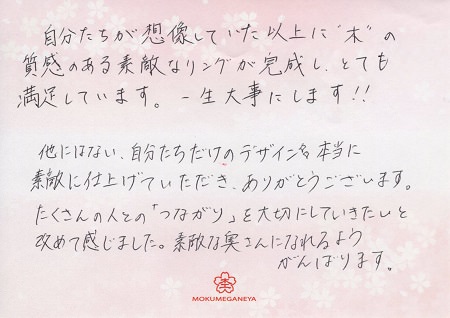 自分たちが想像していた以上に"木"の
質感のある素敵なリングが完成し、とても
満足しています。一生大事にします!!
他にはない、自分たちだけのデザインを本当に
素敵に仕上げていただき、ありがとうございます。
たくさんの人との「つながり」を大切にしていきたいと
改めて感じました。素敵な奥さんになれるよう
がんばります。
MOKUMEGANEYA